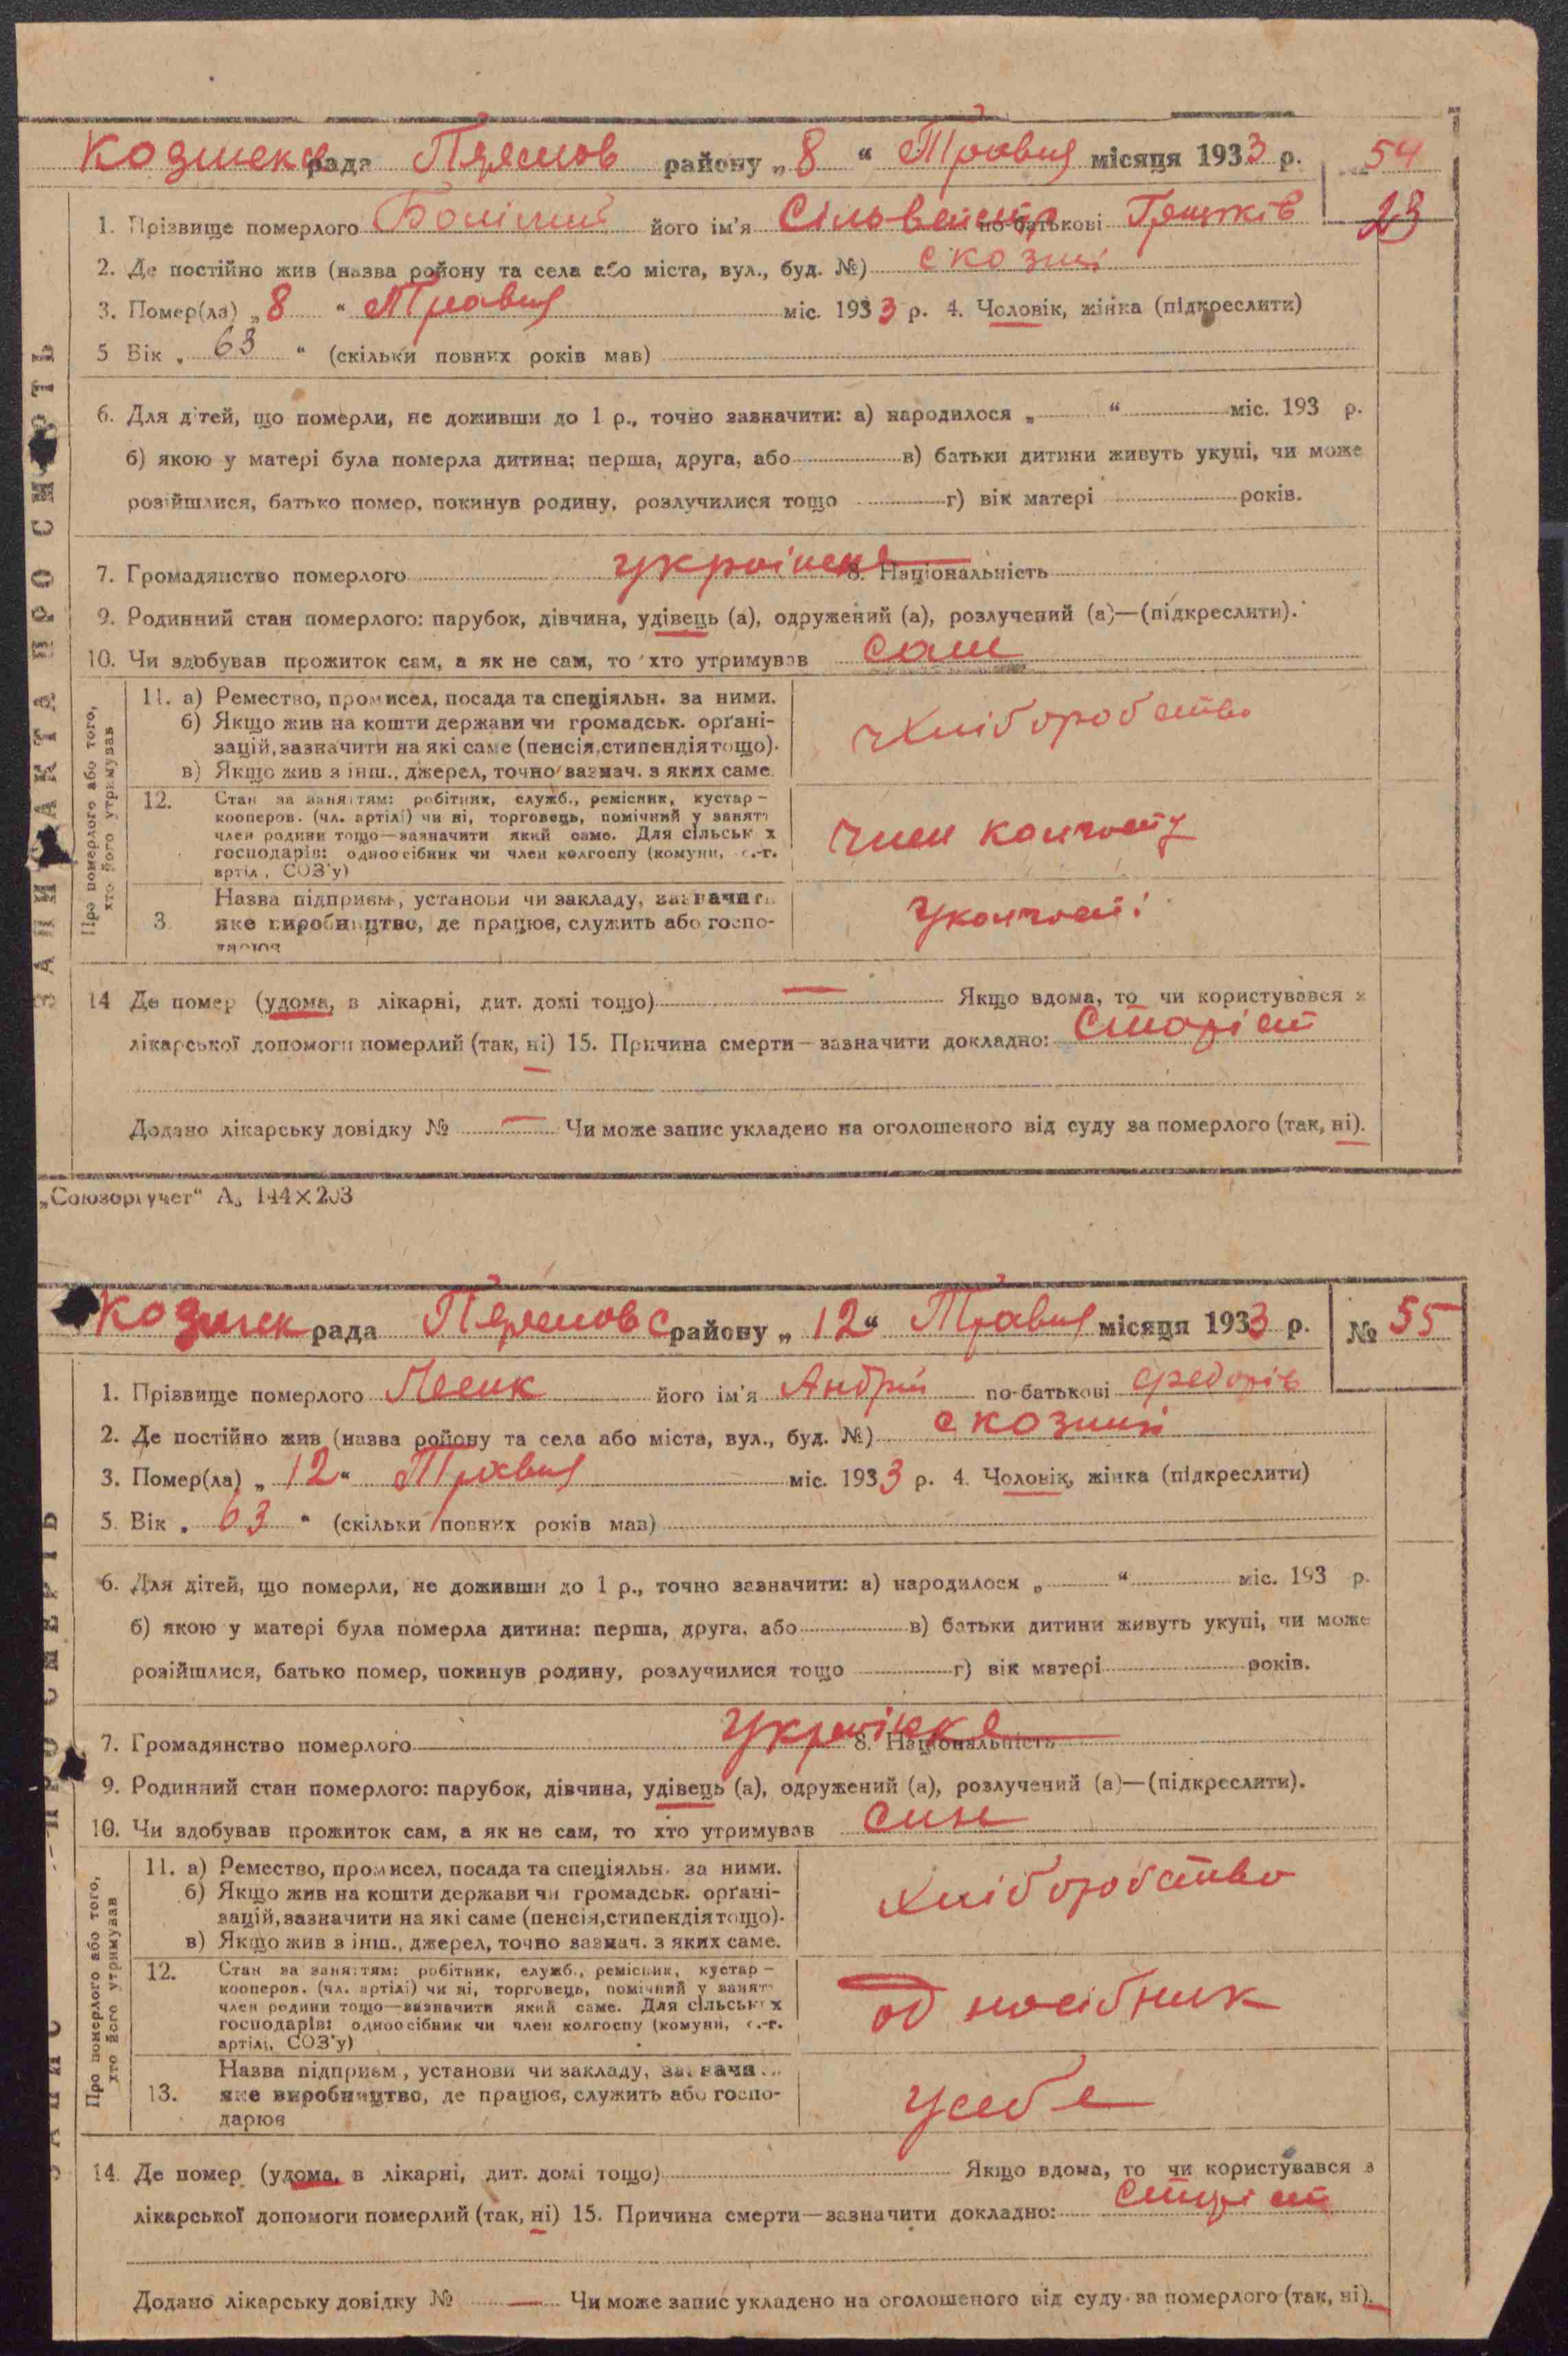 рада району „ 8 “ Травня місяця 1933 р. 54
1. Прізвище померлого його ім'я Сільвестр по-батькові 23
2. Де постійно жив (назва району та села або міста, вул., буд. №)
3. Помер(ла) „ 8 “ Травня міс. 1933 р. 4. Чоловік, жінка (підкреслити)
5 Вік „ 63 “ (скільки повних років мав)
6. Для дітей, що померли, не доживши до 1 р., точно зазначити: а) народилося „ “ міс. 193 р.
б) якою у матері була померла дитина: перша, друга, або в) батьки дитини живуть укупі, чи може
розійшлися, батько помер, покинув родину, розлучилися тощо г) вік матері років.
7. Громадянство померлого українка 8. Національність
9. Родинний стан померлого: парубок, дівчина, удівець (а), одружений (а), розлучений (а)—(підкреслити).
10. Чи здобував прожиток сам, а як не сам, то хто утримував сам
ЗАПИС АКТА ПРО СМЕРТЬ
Про померлого або того,
хто його утримував
11. а) Ремество, промисел, посада та спеціяльн. за ними.
б) Якщо жив на кошти держави чи громадськ. орґані-
зацій, зазначити на які саме (пенсія, стипендія тощо).
в) Якщо жив з інш., джерел, точно зазнач. з яких саме.
хліборобство
12. Стан за заняттям: робітник, служб., ремісник, кустар –
кооперов. (чл. артілі) чи ні, торговець, помічний у занятт
член родини тощо—зазначити який саме. Для сільськ х
господарів: одноосібник чи член колгоспу (комуни, с.-г.
артіл , СОЗ'у)
член колгоспу
3. Назва підприєм., установи чи закладу, зазначить
яке виробництво, де працює, служить або госпо-
дарює
у колгоспі
14 Де помер (удома, в лікарні, дит. домі тощо) — Якщо вдома, то чи користувався з
лікарської допомоги померлий (так, ні) 15. Причина смерти—зазначити докладно: старість
Додано лікарську довідку № — Чи може запис укладено на оголошеного від суду за померлого (так, ні).
„Союзоргучет“ А₅ 144×203
рада району „ 12 “ Травня місяця 1933 р. № 55
1. Прізвище померлого його ім'я Андрій по-батькові Федорів
2. Де постійно жив (назва району та села або міста, вул., буд. №)
3. Помер(ла) „ 12 “ Травня міс. 1933 р. 4. Чоловік, жінка (підкреслити)
5. Вік „ 63 “ (скільки повних років мав)
6. Для дітей, що померли, не доживши до 1 р., точно зазначити: а) народилося „ “ міс. 193 р.
б) якою у матері була померла дитина: перша, друга, або в) батьки дитини живуть укупі, чи може
розійшлися, батько помер, покинув родину, розлучилися тощо г) вік матері років.
7. Громадянство померлого Українка 8. Національність
9. Родинний стан померлого: парубок, дівчина, удівець (а), одружений (а), розлучений (а)—(підкреслити).
10. Чи здобував прожиток сам, а як не сам, то хто утримував син
Про померлого або того,
хто його утримував
11. а) Ремество, промисел, посада та спеціяльн. за ними.
б) Якщо жив на кошти держави чи громадськ. орґані-
зацій, зазначити на які саме (пенсія, стипендія тощо).
в) Якщо жив з інш., джерел, точно зазнач. з яких саме.
хліборобство
12. Стан за заняттям: робітник, служб., ремісник, кустар –
кооперов. (чл. артілі) чи ні, торговець, помічний у занятт
член родини тощо—зазначити який саме. Для сільськ х
господарів: одноосібник чи член колгоспу (комуни, с.-г.
артілі, СОЗ'у)
одноосібник
13. Назва підприєм , установи чи закладу, зазнача
яке виробництво, де працює, служить або госпо-
дарює
у себе
14. Де помер (удома, в лікарні, дит. домі тощо) Якщо вдома, то чи користувався з
лікарської допомоги померлий (так, ні) 15. Причина смерти—зазначити докладно:
Додано лікарську довідку № — Чи може запис укладено на оголошеного від суду за померлого (так, ні).